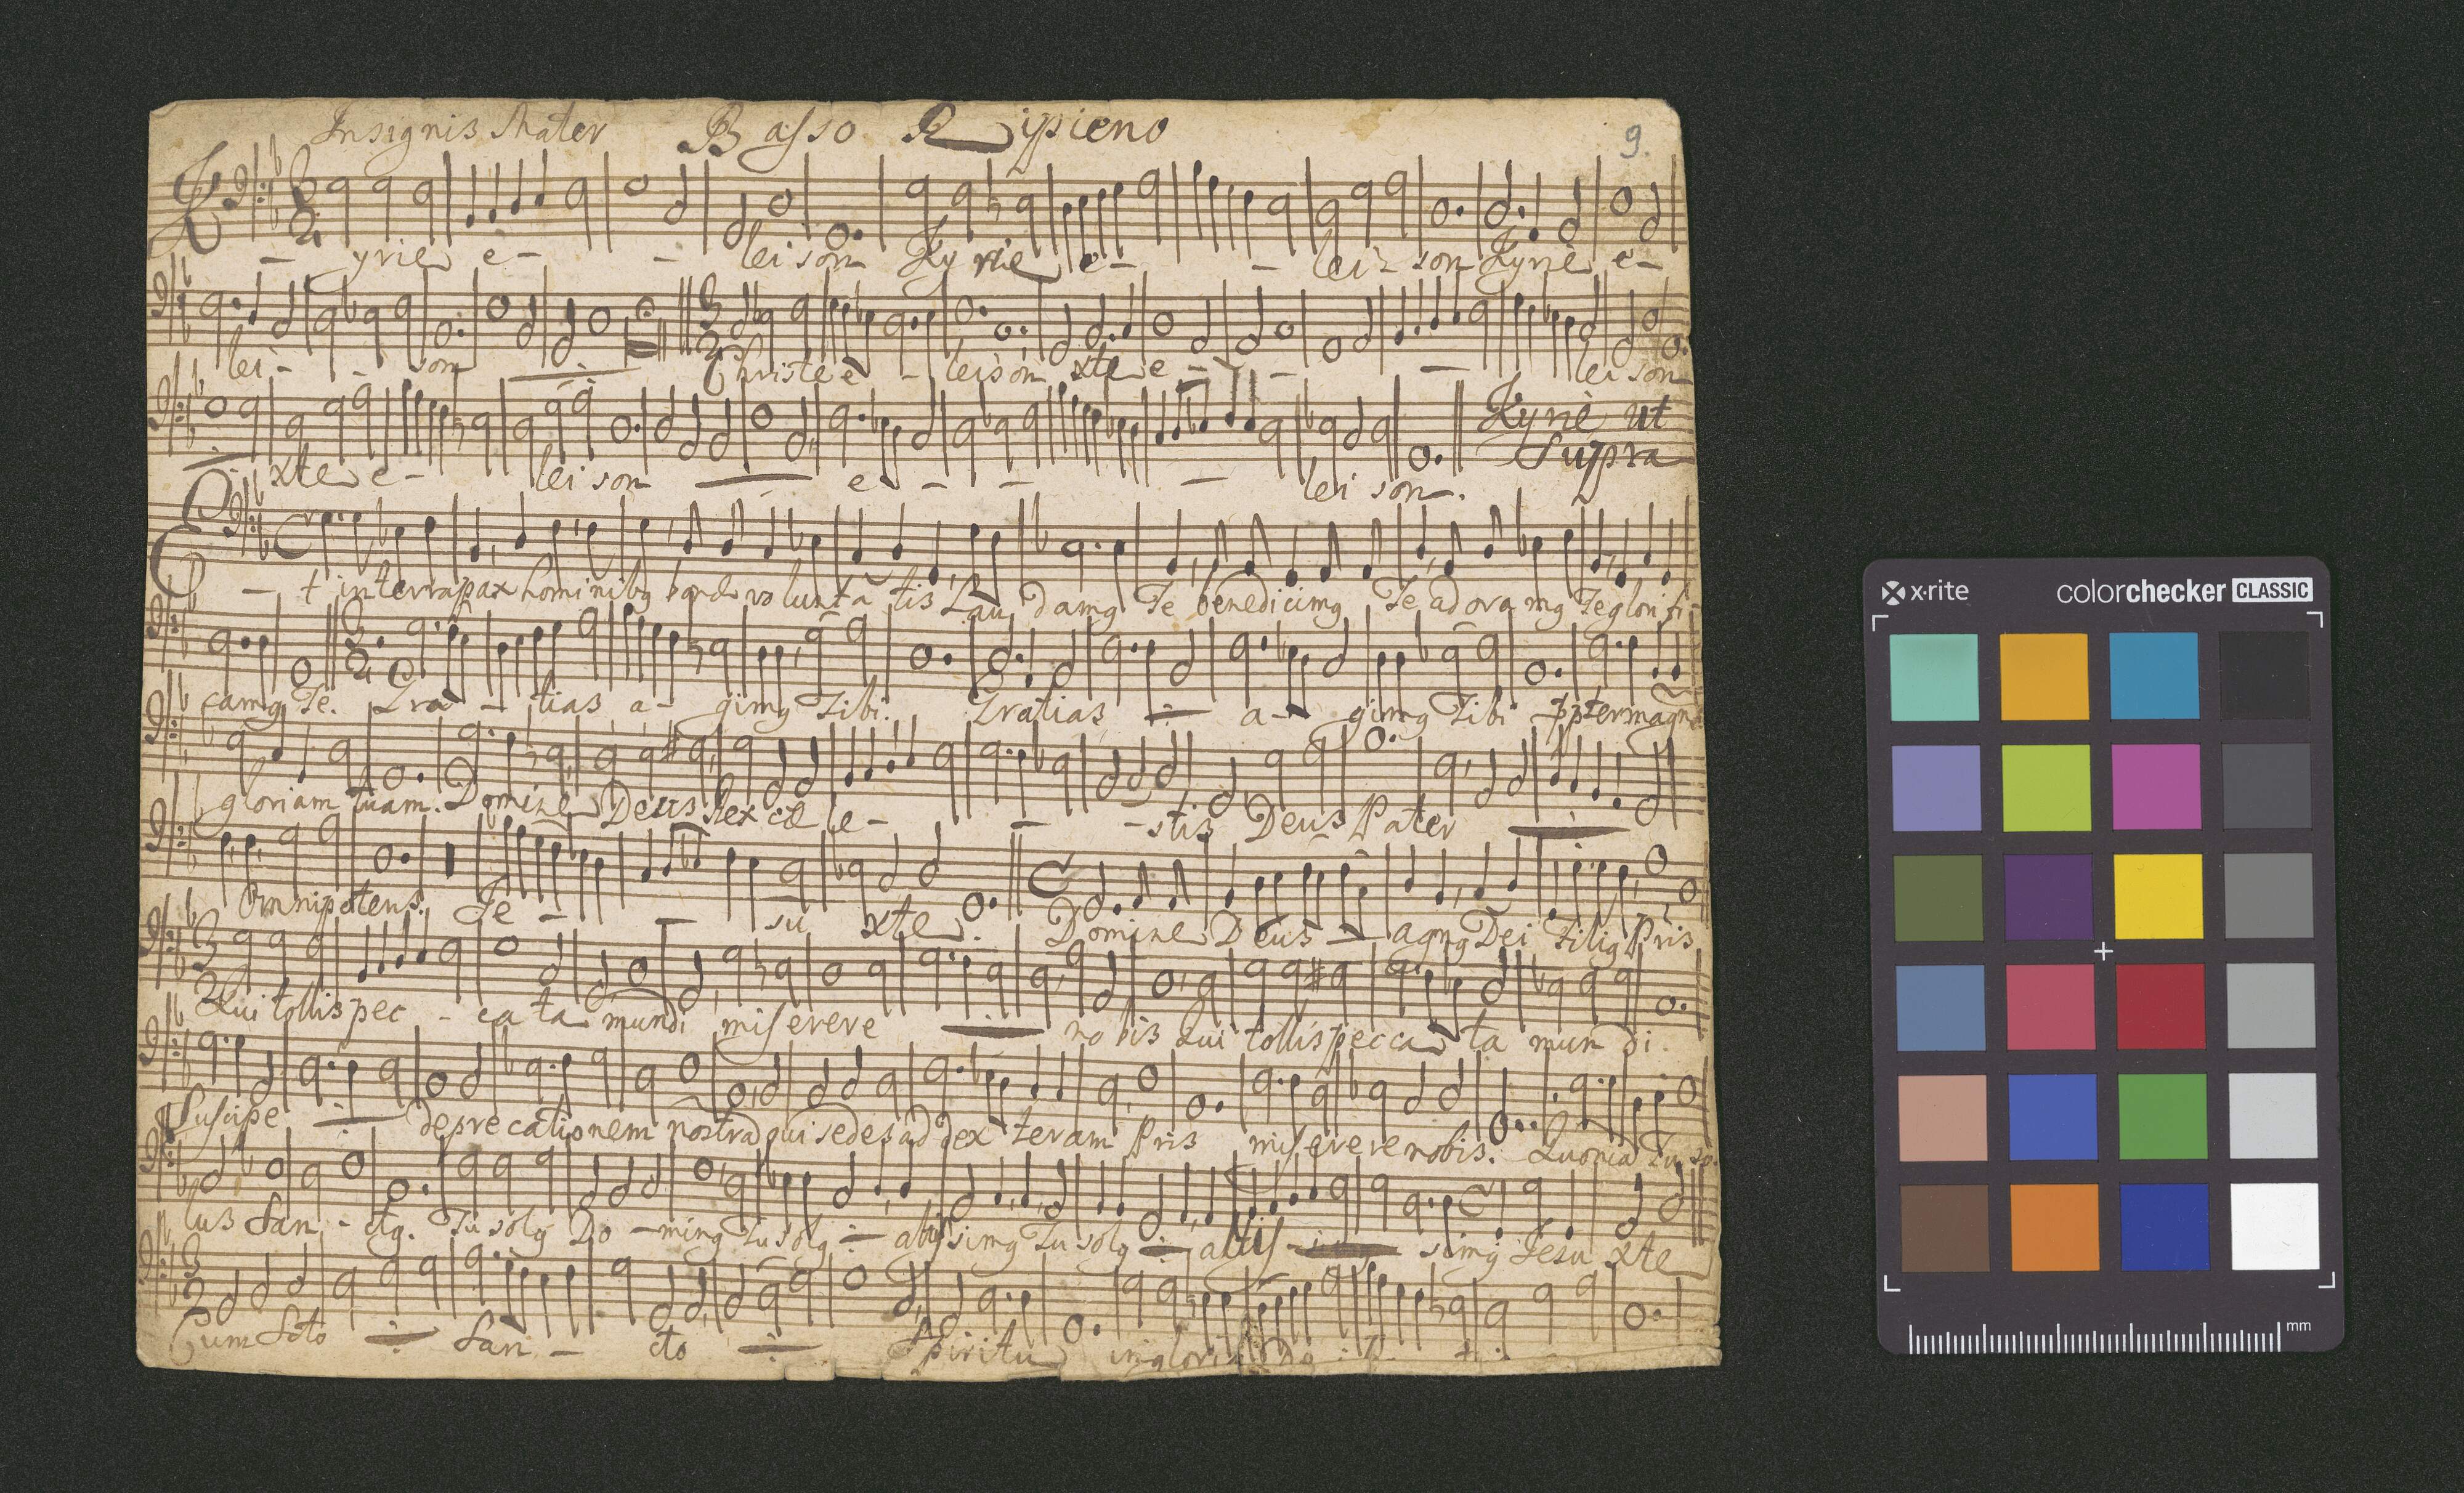 Insignis Mater Basso Ripieno
9.
Kyrie e- - leison Kyrie e- - lei- son Kyrie e-
lei- - son Christe e - leison xte e - - - leison
xte e- leison e - - - lei son.
Kyrie ut
Supra
Et in terra pax hominibꝯ bonæ voluntatis Laudamꝯ Te benedicimꝯ Te adoramꝯ Te glorifi-
camꝯ Te. Gratias a- gimꝯ Tibi. Gratias a- gimꝯ Tibi ppter magnã
gloriam tuam. Domine Deus Rex cæle- - -stis Deus Pater
Omnipotens. Je - - su xte. Domine Deus agnꝯ Dei Filiꝯ Pris
Qui tollis pec - ca ta mundi miserere nobis Qui tollis pecca ta mundi.
Suscipe deprecationem nostrã qui sedes ad dexteram Pris miserere nobis. Quoniã Tu so-
lus San - ctꝯ. Tu solꝯ Do - minꝯ Tu solꝯ altissimꝯ Tu solꝯ altis- simꝯ Jesu xte
Cum Scto San - cto Spiritu in gloria
x·rite colorchecker CLASSIC
mm